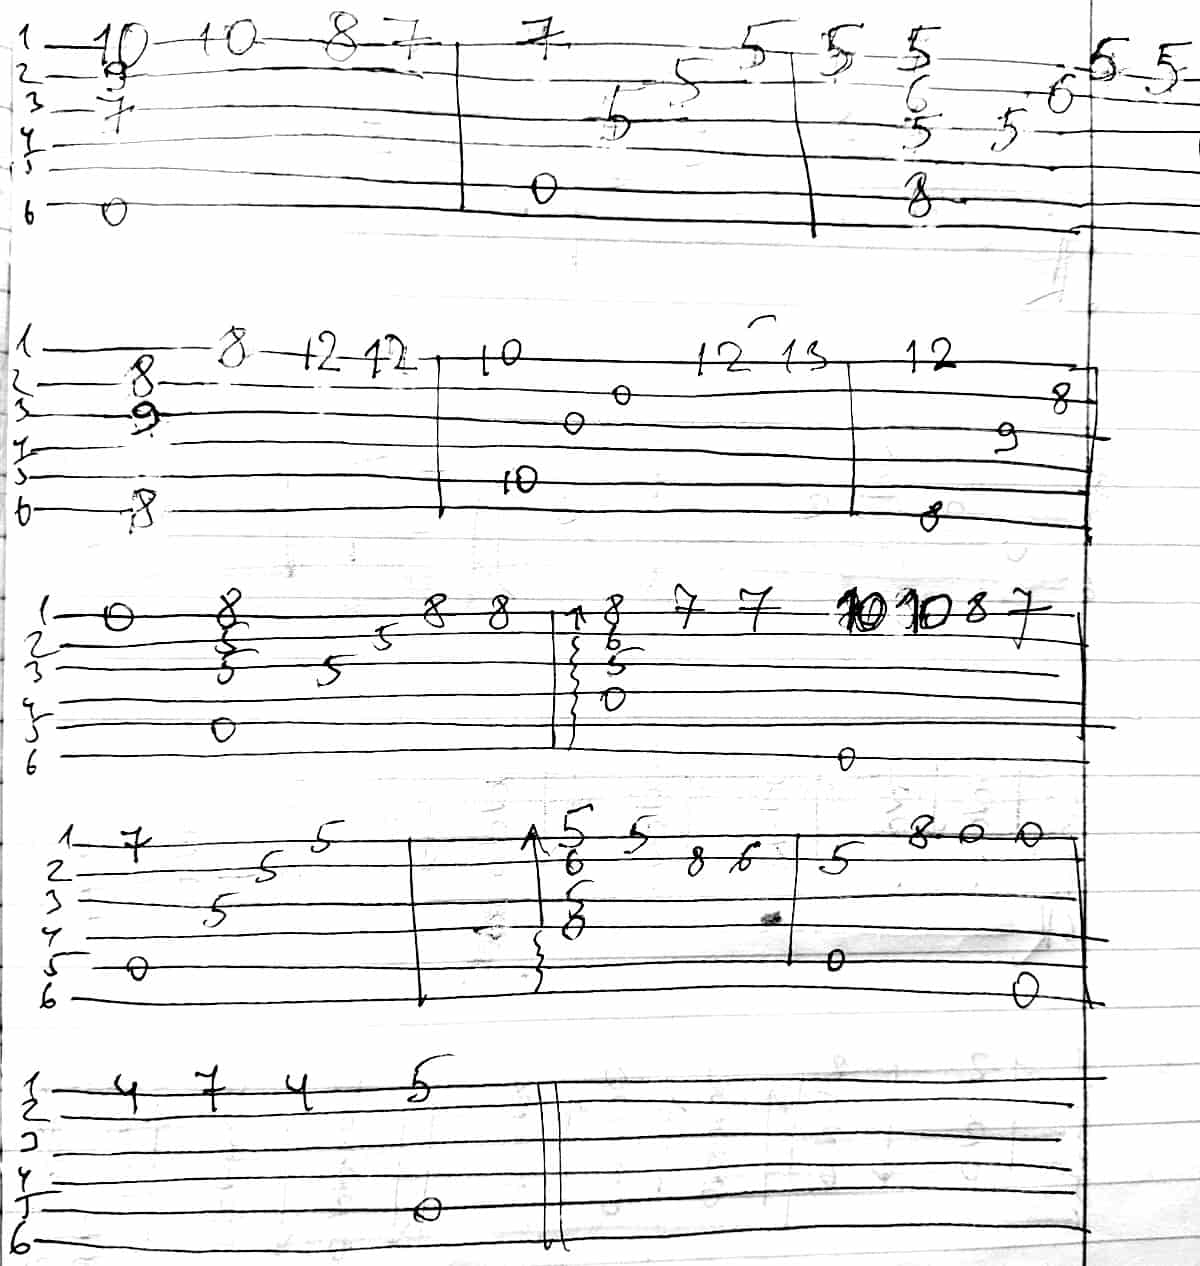 1 10 10 8 7 7 5 5 5 5 5
2 9 5 6 6
3 7 5 5 5
4
5 0 8
6 0
1 8 12 12 10 12 13 12
2 8 0 8
3 9 0 9
4
5 10
6 8 8
1 0 8 8 8 8 7 7 10 10 8 7
2 5 5 6
3 5 5 5
4 0
5 0
6 0
1 7 5 5 5 8 0 0
2 5 6 8 6 5
3 5 5
4 8
5 0 0
6 0
1 4 7 4 5
2
3
4
5 0
6